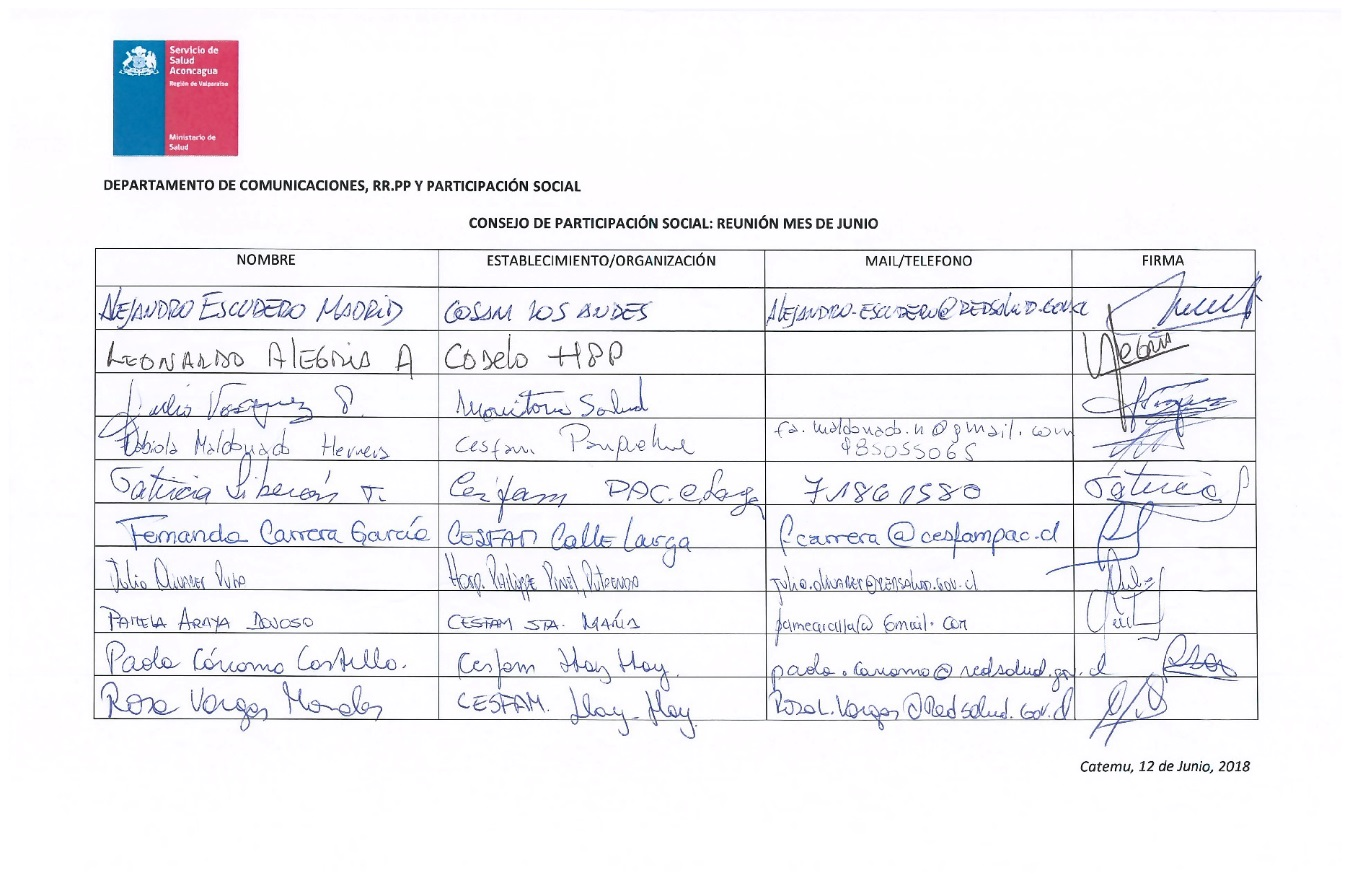 Servicio de
Salud
Aconcagua
Región de Valparaíso
Ministerio de
Salud
DEPARTAMENTO DE COMUNICACIONES, RR.PP Y PARTICIPACIÓN SOCIAL
CONSEJO DE PARTICIPACIÓN SOCIAL: REUNIÓN MES DE JUNIO
NOMBRE ESTABLECIMIENTO/ORGANIZACIÓN MAIL/TELEFONO FIRMA
ALEJANDRO ESCUDERO MADRID COSAM LOS ANDES ALEJANDRO.ESCUDERO@REDSALUD.GOV.CL
LEONARDO AlEGRIA A Codelo HPP Alegria
Vasquez Monitora Salud
Fabiola Maldonado Herrera Cesfam Panquehue fa.maldonado.n@gmail.com
985055065
Patricia T. Cesfam PAC. C. Larga 71861580 Patricia
Fernanda Carrera García CESFAM Calle Larga fcarrera@cesfampac.cl
Julio Olivares Hosp. Philippe Pinel, Putaendo julio.olivares@redsalud.gov.cl
PAMELA ARAYA DONOSO CESFAM STA. MARÍA
Paola Cánomo Costillo. Cesfam Llay Llay. paola.canomo@redsalud.gov.cl
Rosa Vargas Morales CESFAM. Llay-Llay. RosaL.Vargas@Redsalud.Gov.cl
Catemu, 12 de Junio, 2018